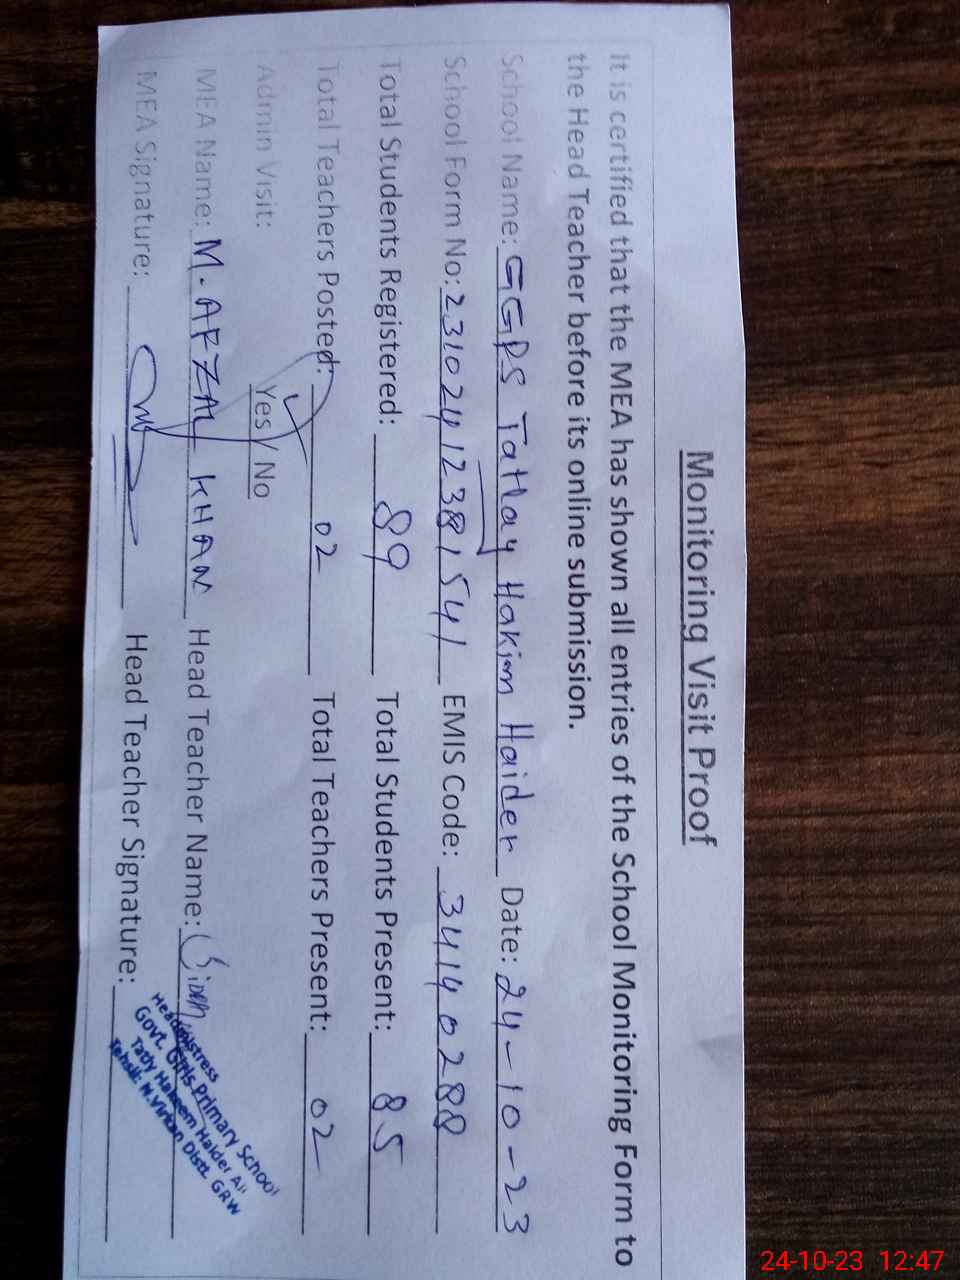 Monitoring Visit Proof
It is certified that the MEA has shown all entries of the School Monitoring Form to
the Head Teacher before its online submission.
School Name: GGPS Tatlay Hakim Haider Date: 24-10-23
School Form No: 23102412381541 EMIS Code: 34140288
Total Students Registered: 89 Total Students Present: 85
Total Teachers Posted: 02 Total Teachers Present: 02
Admin Visit: Yes / No
MEA Name: M. AFZAL KHAN Head Teacher Name:
MEA Signature: Head Teacher Signature:
Headmistress
Govt. Girls Primary School
Tatly Hakeem Haider Ali
Tehsil: N.Virkan Distt. GRW
24-10-23 12:47